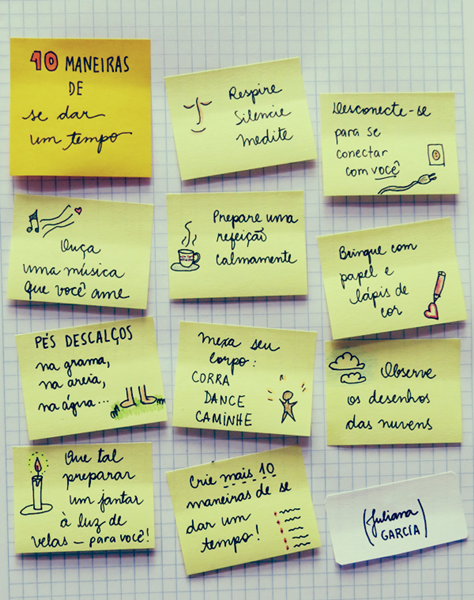 10 MANEIRAS
DE
se dar
um tempo
Respire
Silencie
Medite
Desconecte-se
para se
conectar
com você!
Ouça
uma música
que você ame
Prepare uma
refeição
calmamente
Brinque com
papel e
lápis de
cor
PÉS DESCALÇOS
na grama,
na areia,
na água...
Mexa seu
corpo:
CORRA
DANCE
CAMINHE
Observe
os desenhos
das nuvens
Que tal
preparar
um jantar
à luz de
velas – para você!
Crie mais 10
maneiras de se
dar um
tempo!
(Juliana
GARCIA)